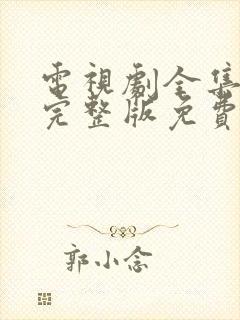 電視劇全集
完整版免費
郭小念